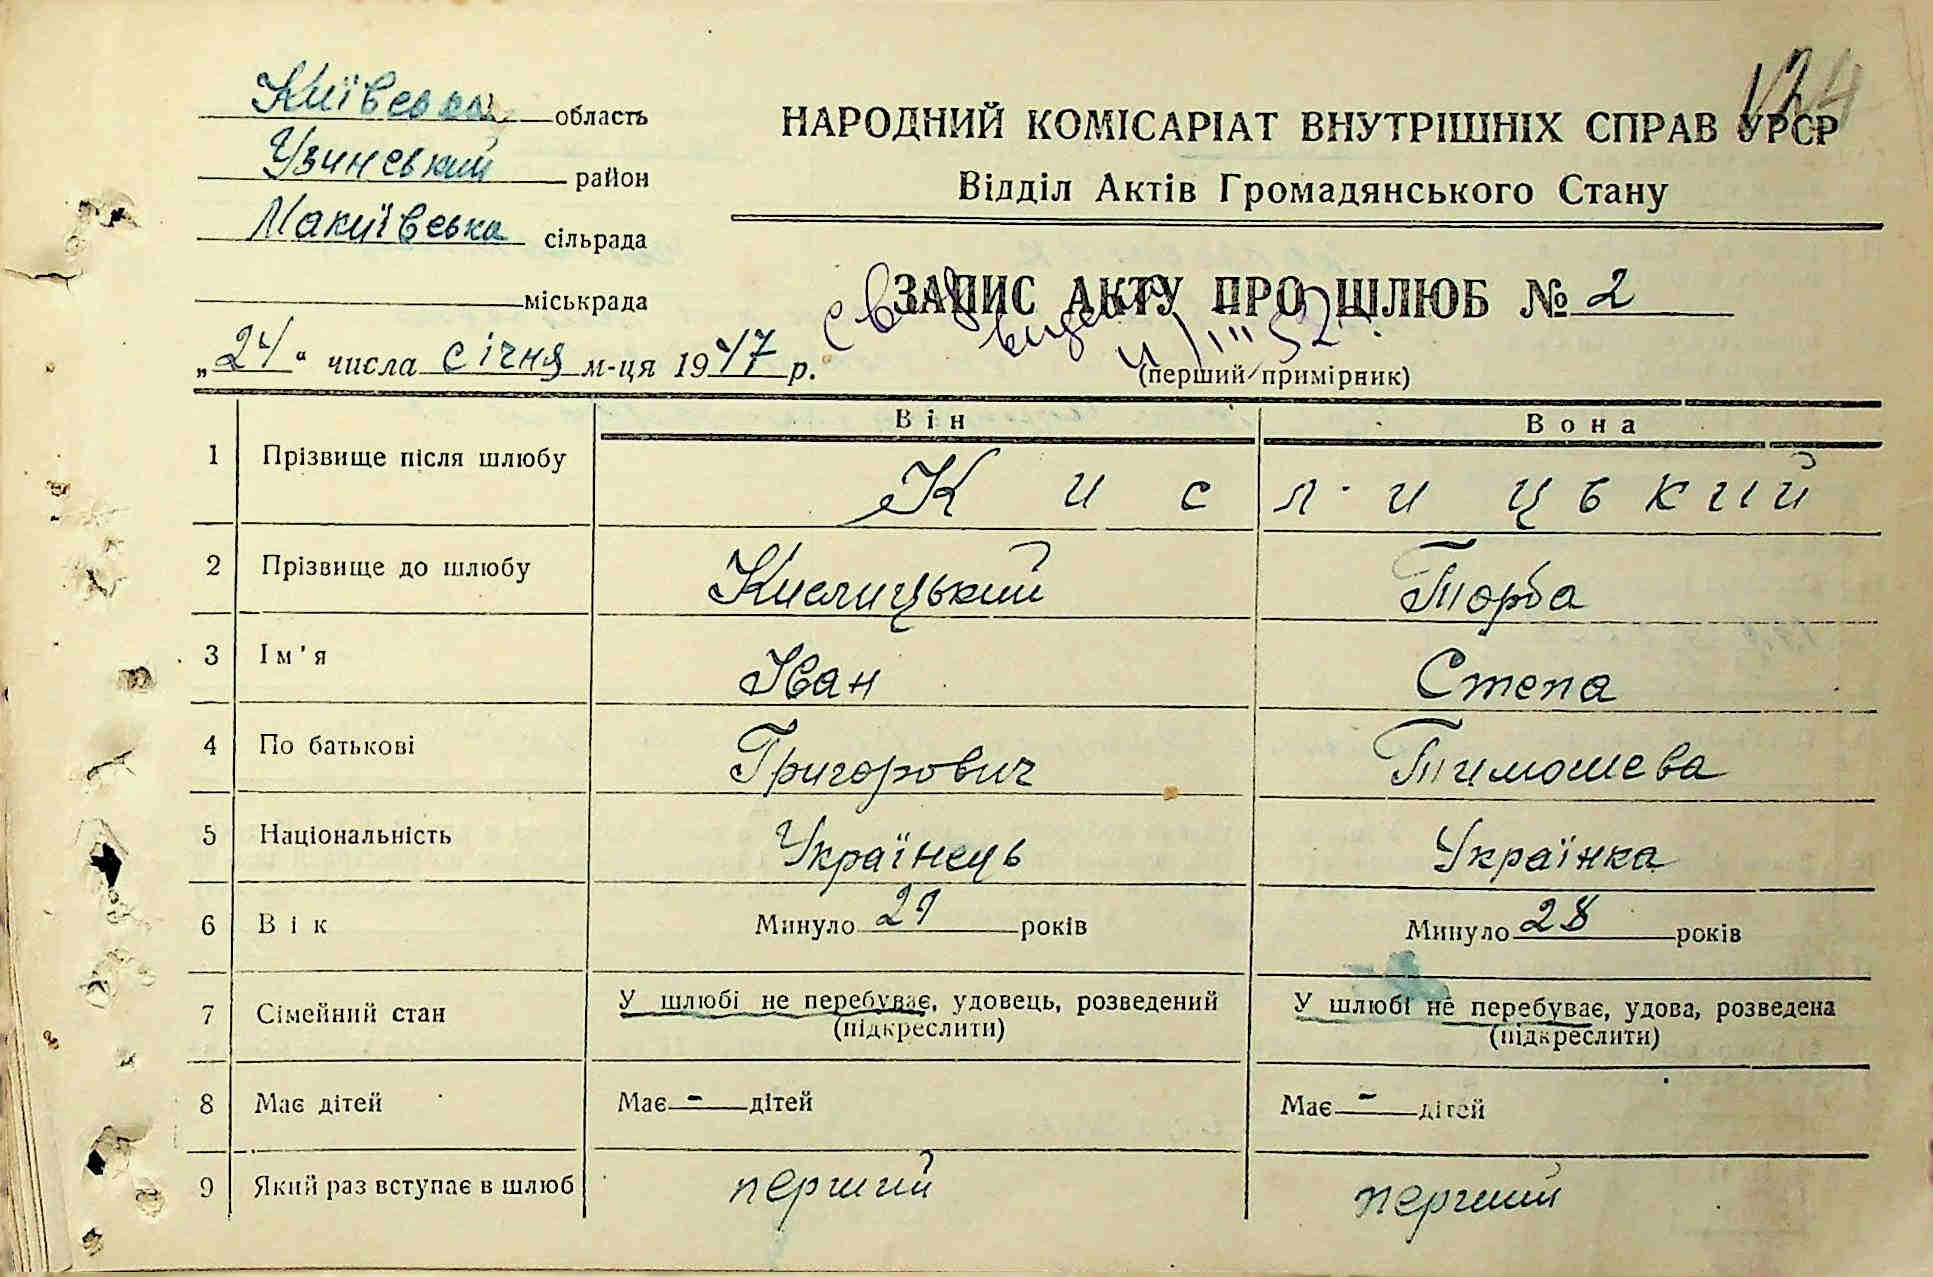 Київська область
Узинський район
Макиївська сільрада
міськрада
„24" числа січня м-ця 1947 р.
124
НАРОДНИЙ КОМІСАРІАТ ВНУТРІШНІХ СПРАВ УРСР
Відділ Актів Громадянського Стану
ЗАПИС АКТУ ПРО ШЛЮБ № 2
(перший примірник)
Він Вона
1 Прізвище після шлюбу Кислицький
2 Прізвище до шлюбу Кислицький Торба
3 Ім'я Іван Степа
4 По батькові Григорович Тимошева
5 Національність Українець Українка
6 Вік Минуло 29 років Минуло 28 років
7 Сімейний стан У шлюбі не перебуває, удовець, розведений (підкреслити) У шлюбі не перебуває, удова, розведена (підкреслити)
8 Має дітей Має - дітей Має - дітей
9 Який раз вступає в шлюб перший перший